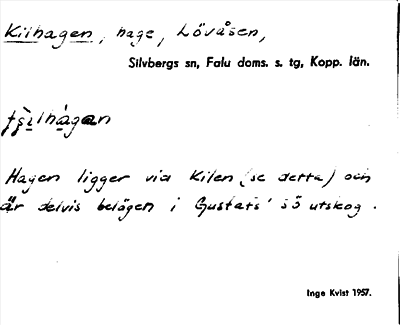 Kilhagen, hage, Lövåsen,
Silvbergs sn, Falu doms. s. tg, Kopp. län.
Hagen ligger vid Kilen (se detta) och
är delvis belägen i Gustafs' sö utskog.
Inge Kvist 1957.